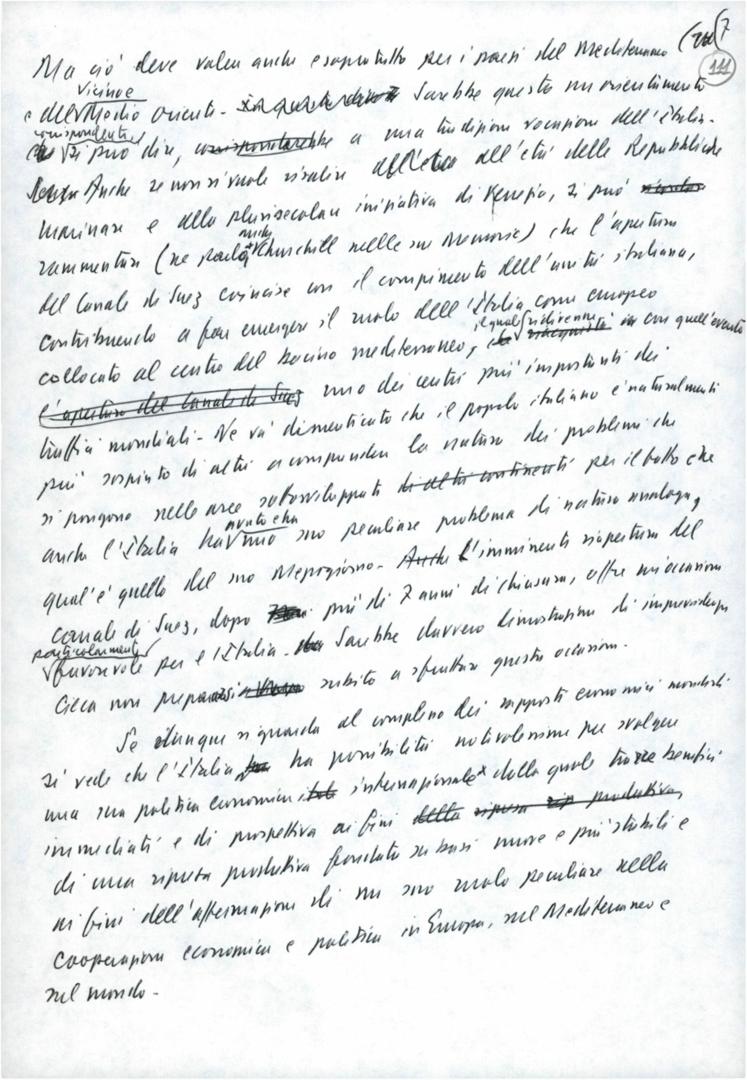 7
111
Ma ciò deve valere anche e soprattutto per i paesi del Mediterraneo
Vicino e
e del Medio oriente. Sarebbe questo un orientamento
corrispondente
si può dire, corrisponderebbe a una tradizionale vocazione dell'Italia.
Anche se non si vuole risalire all'età delle Repubbliche
marinare e alla plurisecolare iniziativa di Venezia, si può
anche
rammentare (ne parla Churchill nelle sue Memorie) che l'apertura
del Canale di Suez coincise con il compimento dell'unità italiana,
contribuendo a fare emergere il ruolo dell'Italia come europeo
il quale ridivenne
collocato al centro del bacino mediterraneo, riacquistò con quell'evento
l'apertura del Canale di Suez uno dei centri più importanti dei
traffici mondiali. Né va dimenticato che il popolo italiano è naturalmente
più sospinto di altri a comprendere la natura dei problemi che
si pongono nelle aree sottosviluppate di altri continenti per il fatto che
avuto e ha
anche l'Italia ha un suo peculiare problema di natura analoga,
qual'è quello del suo Mezzogiorno. Anche l'imminente riapertura del
canale di Suez, dopo più di 7 anni di chiusura, offre un'occasione
particolarmente
favorevole per l'Italia. Sarebbe davvero dimostrazione di imprevidenza
cieca non prepararsi subito a sfruttare questa occasione.
Se dunque si guarda al complesso dei rapporti economici mondiali
si vede che l'Italia ha possibilità notevolissime per svolgere
una sua politica economica internazionale dalla quale trarre benefici
immediati e di prospettiva ai fini della ripresa produttiva,
di una ripresa produttiva fondata su basi nuove e più stabili e
ai fini dell'affermazione di un suo ruolo peculiare nella
cooperazione economica e politica in Europa, nel Mediterraneo e
nel mondo.